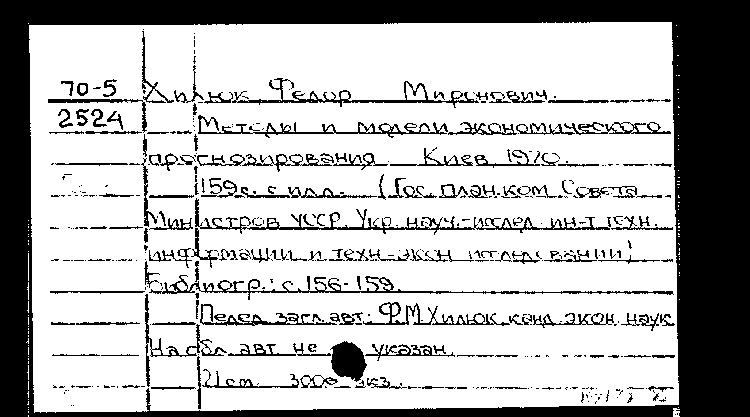 70-5 Хилюк, Федор Миронович.
2524 Методы и модели экономического
прогнозирования Киев, 1970.
159с. с илл. (Гос. план. ком Совета
Министров УССР. Укр. науч.-исслед. ин-т техн.
информации и техн.-экон исследований)
Библиогр.: с. 156-159.
Перед загл. авт.: Ф.М. Хилюк, канд. экон. наук
На обл. авт. не указан.
21см. 3000 экз.